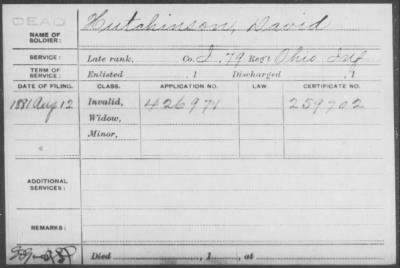 DEAD
NAME OF SOLDIER: Hutchinson, David
SERVICE: Late rank, Co. I, 79 Reg't Ohio Inf
TERM OF SERVICE: Enlisted , 1 Discharged , 1
DATE OF FILING. CLASS. APPLICATION NO. LAW. CERTIFICATE NO.
1881 Aug 12 Invalid, 426971 259702
Widow,
Minor,
ADDITIONAL SERVICES:
REMARKS:
Died , 1 , at